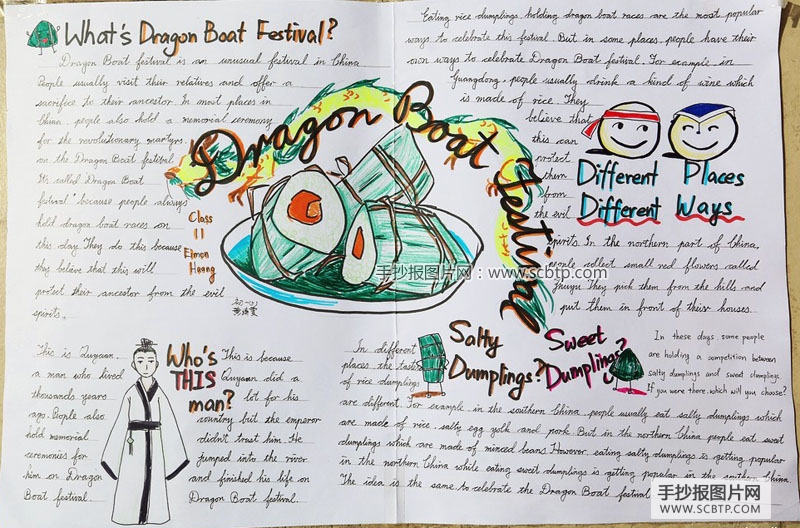 What's Dragon Boat Festival?
Dragon Boat festival is an unusual festival in China.
People usually visit their relatives and offer a
sacrifice to their ancestor. In most places in
China, people also hold a memorial ceremony
for the revolutionary martyrs
on the Dragon Boat festival.
It's called Dragon Boat
festival "because people always
hold dragon boat races on
this day. They do this because
they believe that this will
protect their ancestor from the evil
spirits.
Class
11
Eimon
Huang
Dragon Boat Festival
手抄报图片网：www.scbtp.com
Eating rice dumplings, holding dragon boat races are the most popular
ways to celebrate this festival. But in some places, people have their
own ways to celebrate Dragon Boat festival. For example in
Guangdong, people usually drink a kind of wine which
is made of rice. They
believe that
this can
protect
them
from
the evil
spirits. In the northern part of China,
people collect small red flowers called
Zhuyu. They pick them from the hills and
put them in front of their houses.
Different Places
Different Ways
This is Quyuan,
a man who lived
thousands years
ago. People also
hold memorial
ceremonies for
him on Dragon
Boat festival.
Who's
THIS
man?
This is because
Quyuan did a
lot for his
country but the emperor
didn't trust him. He
jumped into the river
and finished his life on
Dragon Boat festival.
Salty
Dumplings?
Sweet
Dumplings?
In different
places the taste
of rice dumplings
are different. For example in the southern China, people usually eat salty dumplings which
are made of rice, salty egg yolk and pork. But in the northern China people eat sweet
dumplings which are made of minced beans. However, eating salty dumplings is getting popular
in the northern China while eating sweet dumplings is getting popular in the southern China.
The idea is the same: to celebrate the Dragon Boat festival
In these days some people
are holding a competition between
salty dumplings and sweet dumplings.
If you were there, which will you choose?
手抄报图片网
WWW.SCBTP.COM